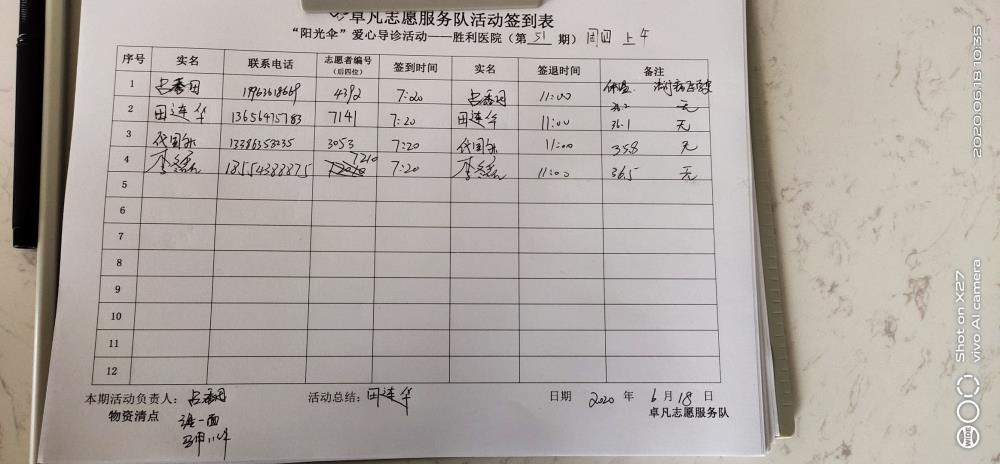 卓凡志愿服务队活动签到表
“阳光伞”爱心导诊活动——胜利医院（第 51 期）周四 上午
序号 实名 联系电话 志愿者编号（后四位） 签到时间 实名 签退时间 备注
体温
1 吕秀丽 4392 7:20 吕秀丽 11:00 36.2 无
2 田连华 13656475783 7141 7:20 田连华 11:00 36.1 无
3 3053 7:20 11:00 35.8 无
4 18554388875 7210 7:20 11:00 36.5 无
5
6
7
8
9
10
11
12
本期活动负责人： 活动总结：田连华 日期 2020 年 6 月 18 日
物资清点 卓凡志愿服务队
一面
2020.06.18 10:35
Shot on X27
vivo AI camera